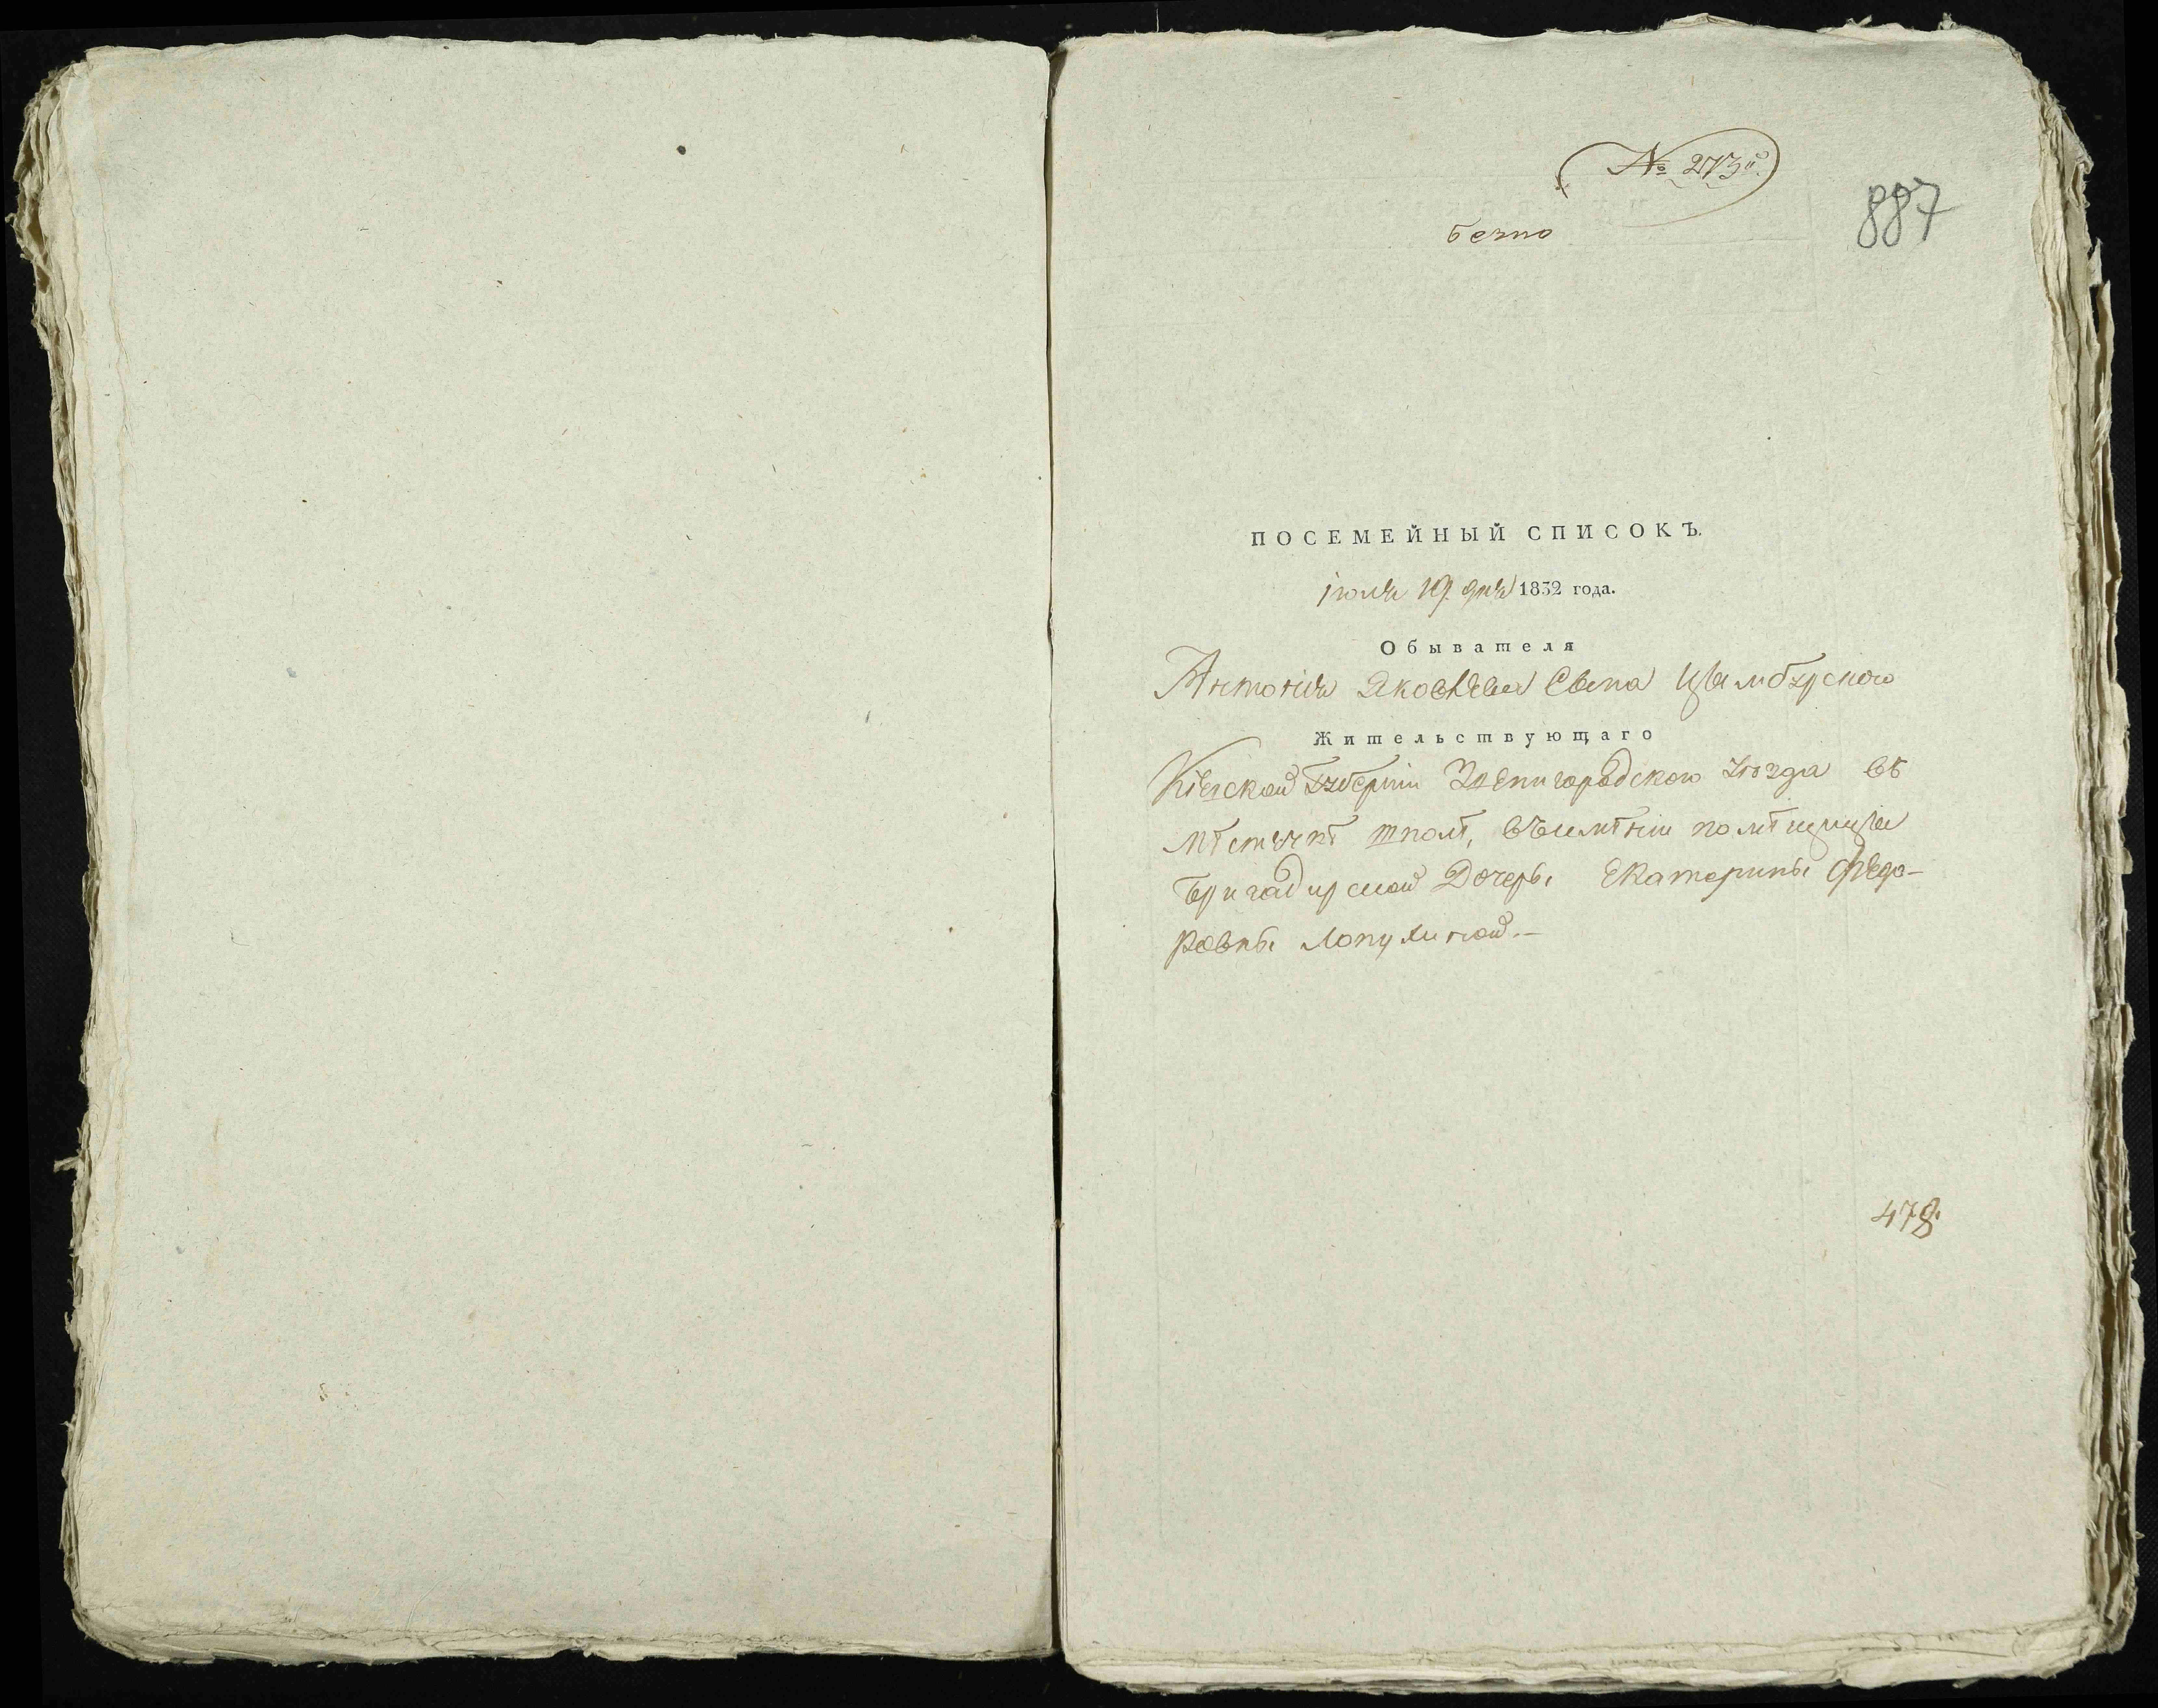 № 273й
887
безпо
ПОСЕМЕЙНЫЙ СПИСОКЪ.
июля 19 дня 1832 года.
Обывателя
Антонія Яковлева Сына Цымбурского
Жительствующаго
Кіевской Губерніи Звенигородского уезда въ
мѣстечкѣ шполѣ, въимѣніи помѣщицы
Бригадирской Дочери Екатерины Федо-
ровны Лопухиной.—
478.